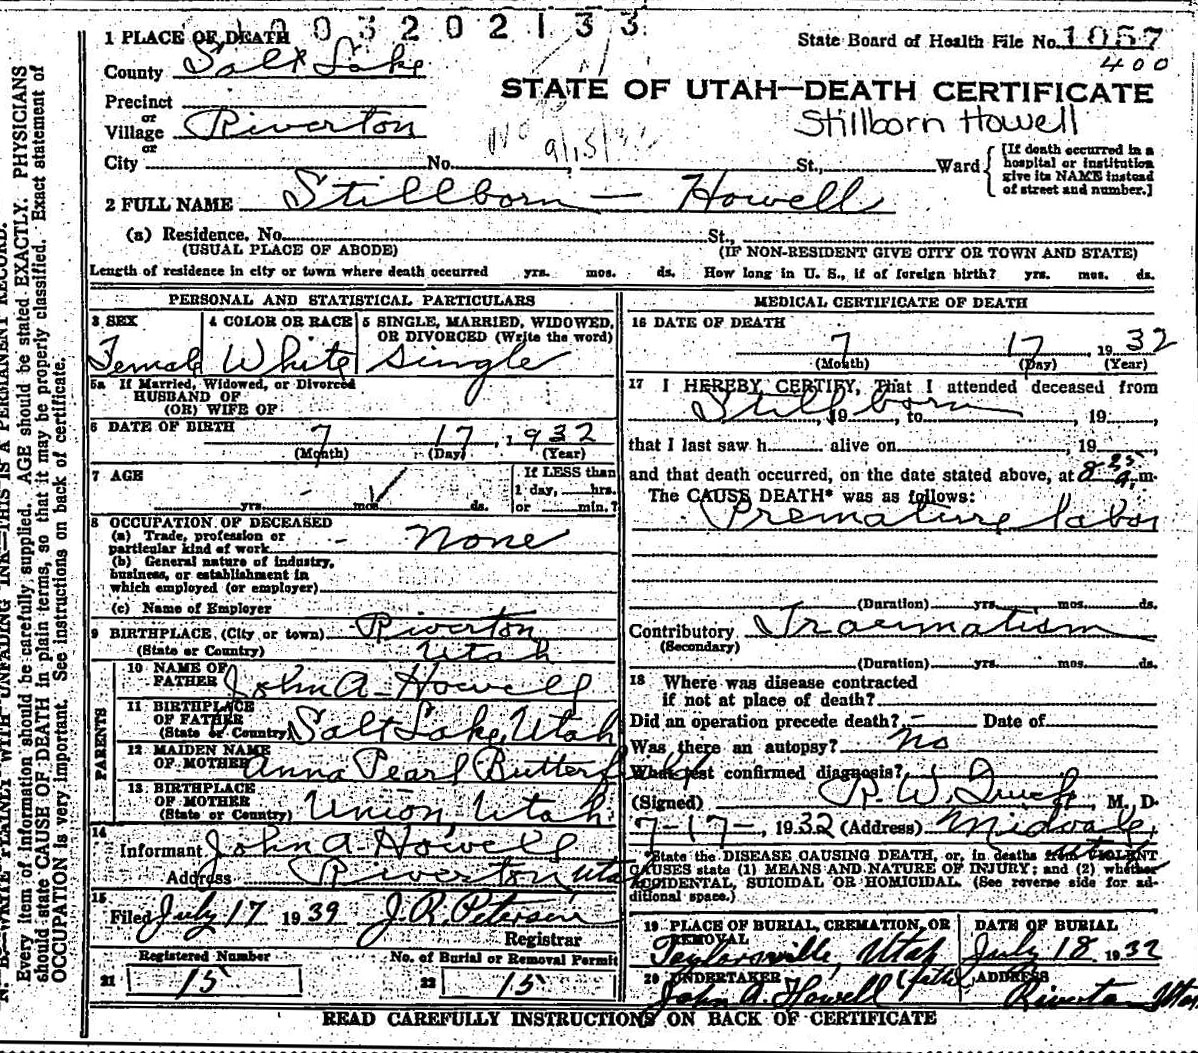 1003202133
1 PLACE OF DEATH
State Board of Health File No. 1057
400
County Salt Lake
STATE OF UTAH—DEATH CERTIFICATE
Precinct
or
Village Riverton
Stillborn Howell
or
City No. St., Ward
[If death occurred in a hospital or institution give its NAME instead of street and number.]
2 FULL NAME Stillborn — Howell
(a) Residence. No. St.,
(USUAL PLACE OF ABODE) (IF NON-RESIDENT GIVE CITY OR TOWN AND STATE)
Length of residence in city or town where death occurred yrs. mos. ds. How long in U. S., if of foreign birth? yrs. mos. ds.
PERSONAL AND STATISTICAL PARTICULARS
3 SEX 4 COLOR OR RACE 5 SINGLE, MARRIED, WIDOWED, OR DIVORCED (Write the word)
Female White Single
5a If Married, Widowed, or Divorced
HUSBAND OF
(OR) WIFE OF
6 DATE OF BIRTH 7 17, 1932
(Month) (Day) (Year)
7 AGE
yrs. mos. ds.
If LESS than
1 day, hrs.
or min.?
8 OCCUPATION OF DECEASED
(a) Trade, profession or
particular kind of work None
(b) General nature of industry,
business, or establishment in
which employed (or employer)
(c) Name of Employer
9 BIRTHPLACE (City or town) Riverton
(State or Country) Utah
PARENTS
10 NAME OF
FATHER John A. Howell
11 BIRTHPLACE
OF FATHER
(State or Country) Salt Lake, Utah
12 MAIDEN NAME
OF MOTHER Anna Pearl Butterfield
13 BIRTHPLACE
OF MOTHER
(State or Country) Union, Utah
14
Informant John A. Howell
Address Riverton Utah
15
Filed July 17 1939 J. R. Peterson
Registrar
Registered Number No. of Burial or Removal Permit
21 15 22 15
MEDICAL CERTIFICATE OF DEATH
16 DATE OF DEATH
7 17, 1932
(Month) (Day) (Year)
17 I HEREBY CERTIFY, That I attended deceased from
Stillborn, 19 , to , 19 ,
that I last saw h alive on , 19
and that death occurred, on the date stated above, at 8 25 a.m.
The CAUSE DEATH* was as follows:
Premature labor
(Duration) yrs. mos. ds.
Contributory Traumatism
(Secondary)
(Duration) yrs. mos. ds.
18 Where was disease contracted
if not at place of death?
Did an operation precede death? — Date of
Was there an autopsy? No
What test confirmed diagnosis?
(Signed) R. W. , M. D.
7-17-, 1932 (Address) Midvale, Utah
*State the DISEASE CAUSING DEATH, or, in deaths from VIOLENT
CAUSES state (1) MEANS AND NATURE OF INJURY; and (2) whether
ACCIDENTAL, SUICIDAL OR HOMICIDAL. (See reverse side for ad-
ditional space.)
19 PLACE OF BURIAL, CREMATION, OR REMOVAL DATE OF BURIAL
Taylorsville, Utah July 18 1932
20 UNDERTAKER ADDRESS
John A. Howell Riverton Utah
READ CAREFULLY INSTRUCTIONS ON BACK OF CERTIFICATE
N. B.—WRITE PLAINLY WITH UNFADING INK—THIS IS A PERMANENT RECORD.
Every item of information should be carefully supplied. AGE should be stated EXACTLY. PHYSICIANS
should state CAUSE OF DEATH in plain terms, so that it may be properly classified. Exact statement of
OCCUPATION is very important. See instructions on back of certificate.